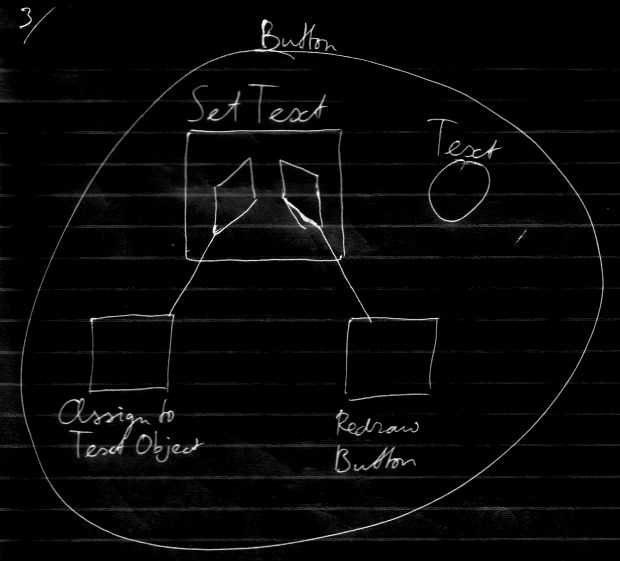 3/
Button
Set Text
Text
Assign to
Text Object
Redraw
Button